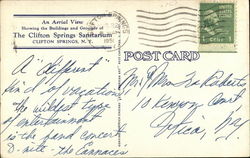 An Aerial View
Showing the Buildings and Grounds of
The Clifton Springs Sanitarium
CLIFTON SPRINGS, N. Y.
POST CARD
A "different"
kind of vacation
The wildest type
of entertainment
is the band concert
Mr & Mrs Lee Roberts
10 Kenyon Court
Utica NY